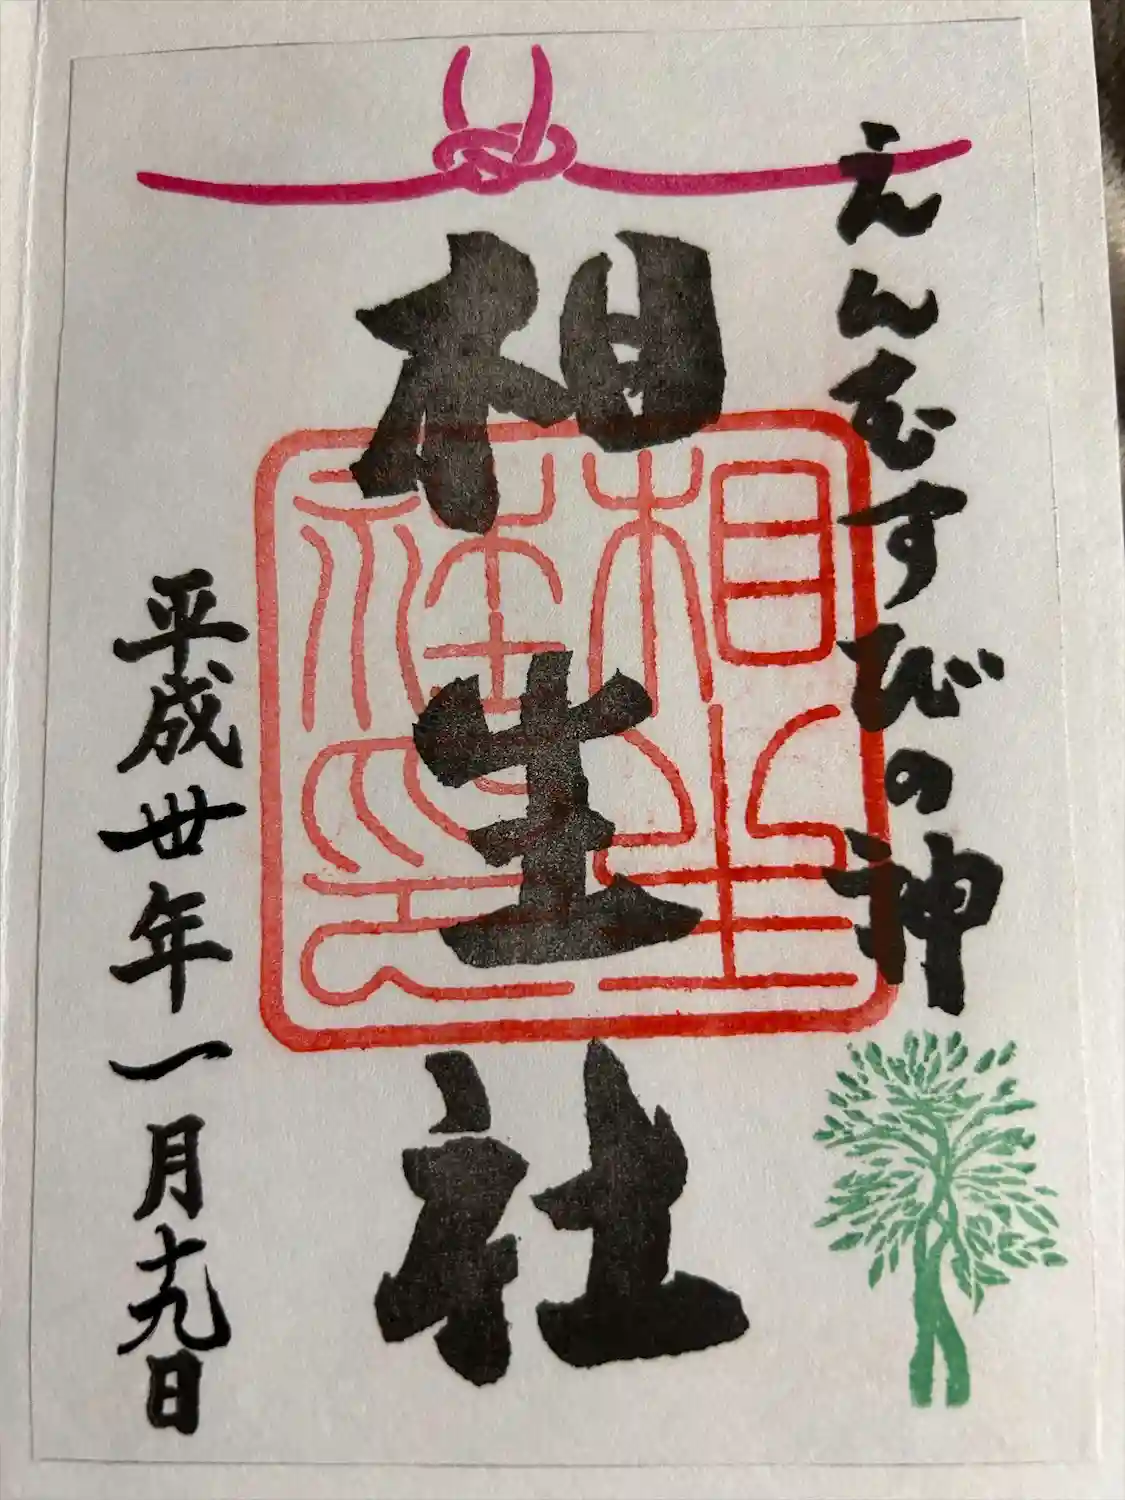 えんむすびの神
相生社
相生社印
平成卅年一月十九日